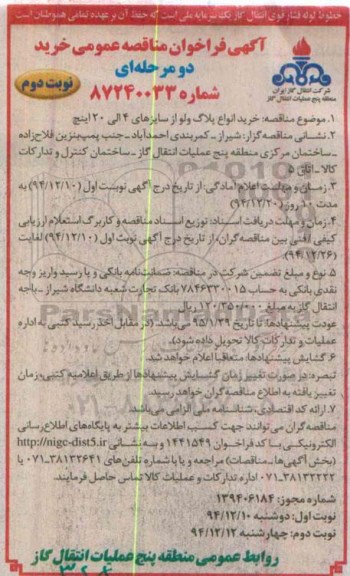 خطوط لوله فشار قوی انتقال گاز یک سرمایه ملی است که حفظ آن بر عهده تمامی هموطنان است
آگهی فراخوان مناقصه عمومی خرید
دو مرحله‌ای
شماره ۸۷۲۴۰۰۳۳
نوبت دوم
شرکت انتقال گاز ایران
منطقه پنج عملیات انتقال گاز
۱. موضوع مناقصه: خرید انواع پلاگ ولو از سایزهای ۴ الی ۲۰ اینچ
۲. نشانی مناقصه گزار: شیراز ـ کمربندی احمدآباد ـ جنب پمپ بنزین فلاح‌زاده
ـ ساختمان مرکزی منطقه پنج عملیات انتقال گاز ـ ساختمان کنترل و تدارکات
کالا ـ اتاق ۵
۳. زمان و مهلت اعلام آمادگی: از تاریخ درج آگهی نوبت اول (۹۴/۱۲/۱۰) به
مدت ۱۰ روز (۹۴/۱۲/۲۰)
۴. زمان و مهلت دریافت اسناد: توزیع اسناد مناقصه و کاربرگ استعلام ارزیابی
کیفی (فنی بین مناقصه گران، از تاریخ درج آگهی نوبت اول (۹۴/۱۲/۱۰) لغایت
(۹۴/۱۲/۲۶)
۵. نوع و مبلغ تضمین شرکت در مناقصه: ضمانتنامه بانکی و یا رسید واریز وجه
نقدی بانکی به حساب ۷۸۴۶۳۳۰۰۱۵ بانک تجارت شعبه دانشگاه شیراز ـ باجه
انتقال گاز به مبلغ ۱۲۰/۳۵۰/۰۰۰ ریال
عودت پیشنهادها تا تاریخ ۹۵/۱/۲۹ می باشد. (در مقابل اخذ رسید کتبی به اداره
عملیات و تدارکات کالا تحویل داده شود).
۶. گشایش پیشنهادها: متعاقبا اعلام خواهد شد.
تبصره: در صورت تغییر زمان گشایش پیشنهادها از طریق اعلامیه کتبی، زمان
تغییر یافته به اطلاع مناقصه گران خواهد رسید.
۷. ارائه کد اقتصادی، شناسنامه ملی الزامی می‌باشد.
مناقصه گران می توانند جهت کسب اطلاعات بیشتر به پایگاه‌های اطلاع رسانی
الکترونیکی با کد فراخوان ۱۴۴۱۵۴۹ و به نشانی http://nigc-dist5.ir
(بخش آگهی‌ها ـ مناقصات) مراجعه و یا با شماره تلفن های ۳۸۱۳۲۶۴۱ـ۰۷۱ یا
۳۸۱۳۲۲۲۲ـ۰۷۱ اداره تدارکات و عملیات کالا تماس حاصل فرمایند.
شماره مجوز: ۱۳۹۴۰۶۱۸۴
نوبت اول: دوشنبه ۹۴/۱۲/۱۰
نوبت دوم: چهارشنبه ۹۴/۱۲/۱۲
روابط عمومی منطقه پنج عملیات انتقال گاز